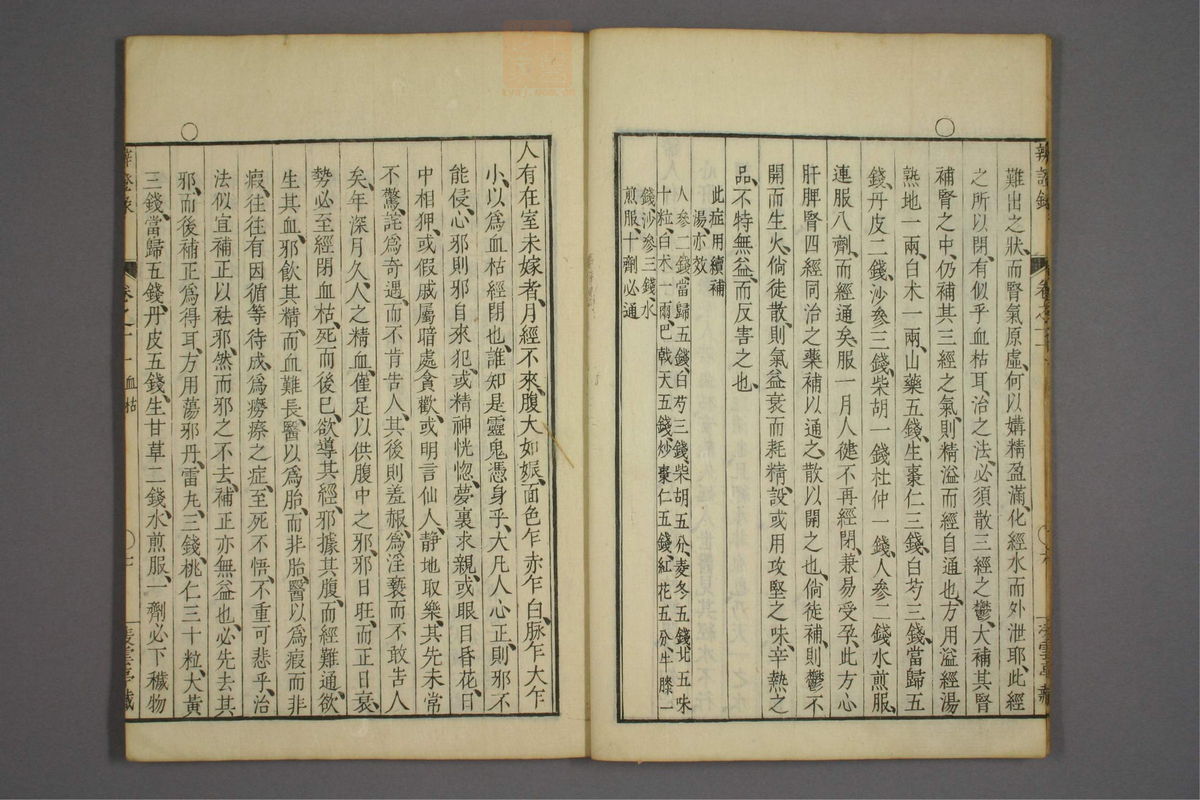 辨證錄
難出之狀、而腎氣原虛、何以媾精盈滿、化經水而外泄耶、此經
之所以閉、有似乎血枯耳、治之法、必須散三經之鬱、大補其腎
補腎之中、仍補其三經之氣、則精溢而經自通也、方用溢經湯
熟地一兩、白术一兩、山藥五錢、生棗仁三錢、白芍三錢、當歸五
錢、丹皮二錢、沙參三錢、柴胡一錢、杜仲一錢、人參二錢、水煎服、
連服八劑、而經通矣、服一月人健不再經閉、兼易受孕、此方心
肝脾腎四經同治之藥、補以通之、散以開之也、倘徒補、則鬱不
開而生火、倘徒散、則氣益衰而耗精、設或用攻堅之味、辛熱之
品、不特無益、而反害之也、
此症用續補
湯、亦效
人參二錢、當歸五錢、白芍三錢、柴胡五分、麥冬五錢、北五味
十粒、白术一兩、巴戟天五錢、炒棗仁五錢、紅花五分、牛膝一
錢、沙參三錢、水
煎服、十劑必通
人有在室未嫁者、月經不來、腹大如娠、面色乍赤乍白、脉乍大乍
小、以為血枯經閉也、誰知是靈鬼憑身乎、大凡人心正、則邪不
能侵、心邪則邪自來犯、或精神恍惚、夢裏求親、或眼目昏花、日
中相狎、或假戚屬暗處貪歡、或明言仙人、靜地取樂、其先未常
不驚、詫為奇遇、而不肯告人、其後則羞赧、為淫褻而不敢告人
矣、年深月久、人之精血、僅足以供腹中之邪、邪日旺、而正日衰、
勢必至經閉血枯、死而後已、欲導其經、邪據其腹、而經難通、欲
生其血、邪飲其精、而血難長、醫以為胎、而非胎、醫以為瘕而非
瘕、往往有因循等待、成為癆瘵之症、至死不悟、不重可悲乎、治
法似宜補正以袪邪、然而邪之不去、補正亦無益也、必先去其
邪、而後補正為得耳、方用蕩邪丹、雷丸、三錢、桃仁三十粒、大黃
三錢、當歸五錢、丹皮五錢、生甘草二錢、水煎服、一劑必下穢物
卷之十一 血枯